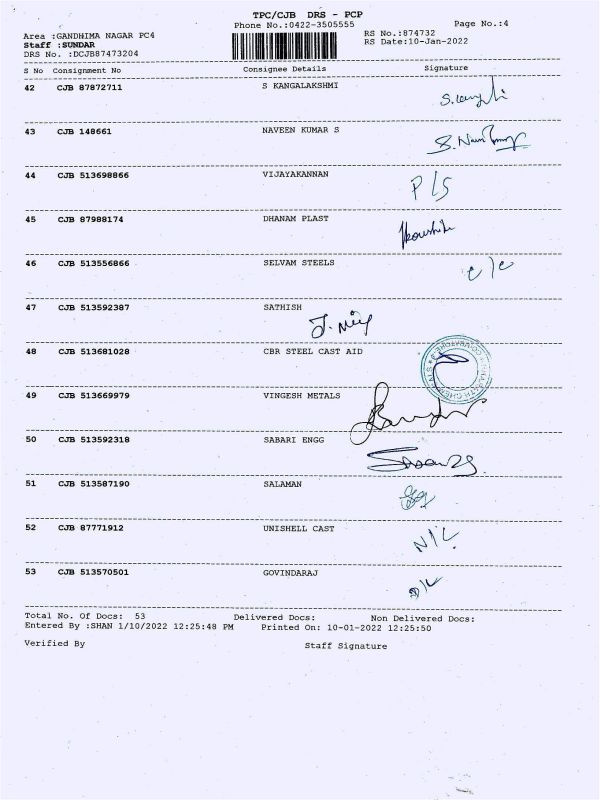 TPC/CJB DRS - PCP
Phone No.:0422-3505555
Page No.:4
Area :GANDHIMA NAGAR PC4
RS No.:874732
Staff :SUNDAR
RS Date:10-Jan-2022
DRS No. :DCJB87473204
S No Consignment No Consignee Details Signature
42 CJB 87872711 S KANGALAKSHMI
43 CJB 148661 NAVEEN KUMAR S
44 CJB 513698866 VIJAYAKANNAN P/S
45 CJB 87988174 DHANAM PLAST
46 CJB 513556866 SELVAM STEELS
47 CJB 513592387 SATHISH
48 CJB 513681028 CBR STEEL CAST AID
49 CJB 513669979 VINGESH METALS
50 CJB 513592318 SABARI ENGG
51 CJB 513587190 SALAMAN
52 CJB 87771912 UNISHELL CAST
53 CJB 513570501 GOVINDARAJ
Total No. Of Docs: 53 Delivered Docs: Non Delivered Docs:
Entered By :SHAN 1/10/2022 12:25:48 PM Printed On: 10-01-2022 12:25:50
Verified By Staff Signature